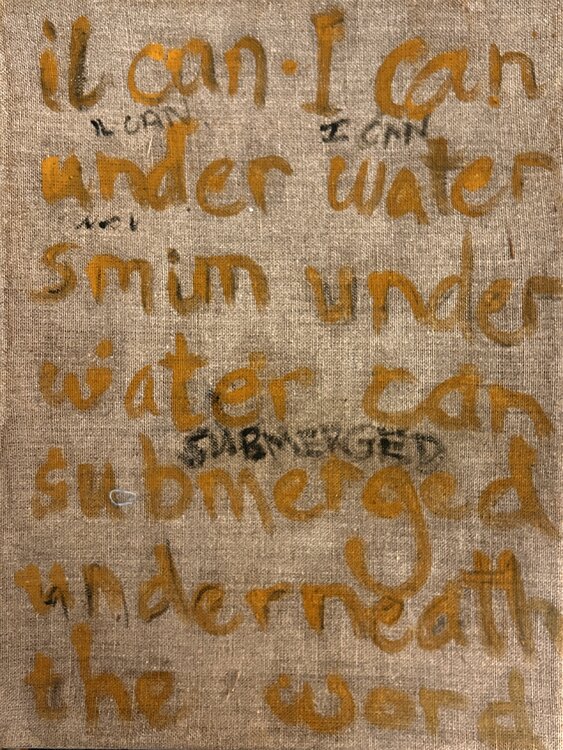 il can · I can
IL CAN I CAN
under water
smim under
water can
SUBMERGED
submerged
underneath
the word